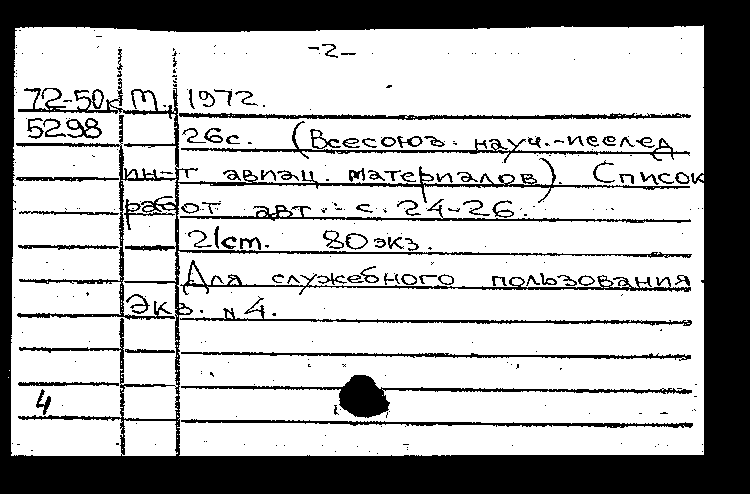 -2-
72-50к М., 1972.
5298 26с. (Всесоюз. науч.-исслед
ин-т авиац. материалов). Список
работ авт.: с. 24-26.
21cm. 80экз.
Для служебного пользования.
Экз. №4.
4